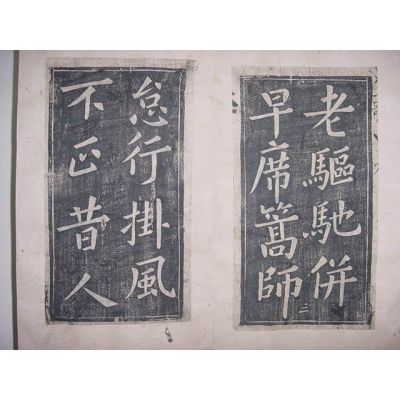 老驅馳併
早席篙師
三
怠行掛風
不正昔人